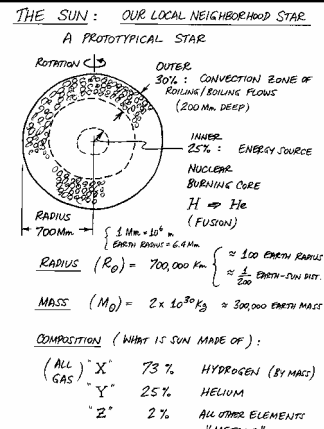 THE SUN: OUR LOCAL NEIGHBORHOOD STAR
A PROTOTYPICAL STAR
ROTATION
OUTER
30% : CONVECTION ZONE OF
ROILING/BOILING FLOWS
(200 Mm DEEP)
INNER
25% : ENERGY SOURCE
NUCLEAR
BURNING CORE
H ⇒ He
(FUSION)
RADIUS
700 Mm
{ 1 Mm = 10⁶ m
EARTH RADIUS = 6.4 Mm
RADIUS (R⊙) = 700,000 Km { ≈ 100 EARTH RADIUS
≈ 1/200 EARTH-SUN DIST.
MASS (M⊙) = 2 x 10³⁰ Kg ≈ 300,000 EARTH MASS
COMPOSITION (WHAT IS SUN MADE OF):
(ALL GAS) "X" 73% HYDROGEN (BY MASS)
"Y" 25% HELIUM
"Z" 2% ALL OTHER ELEMENTS